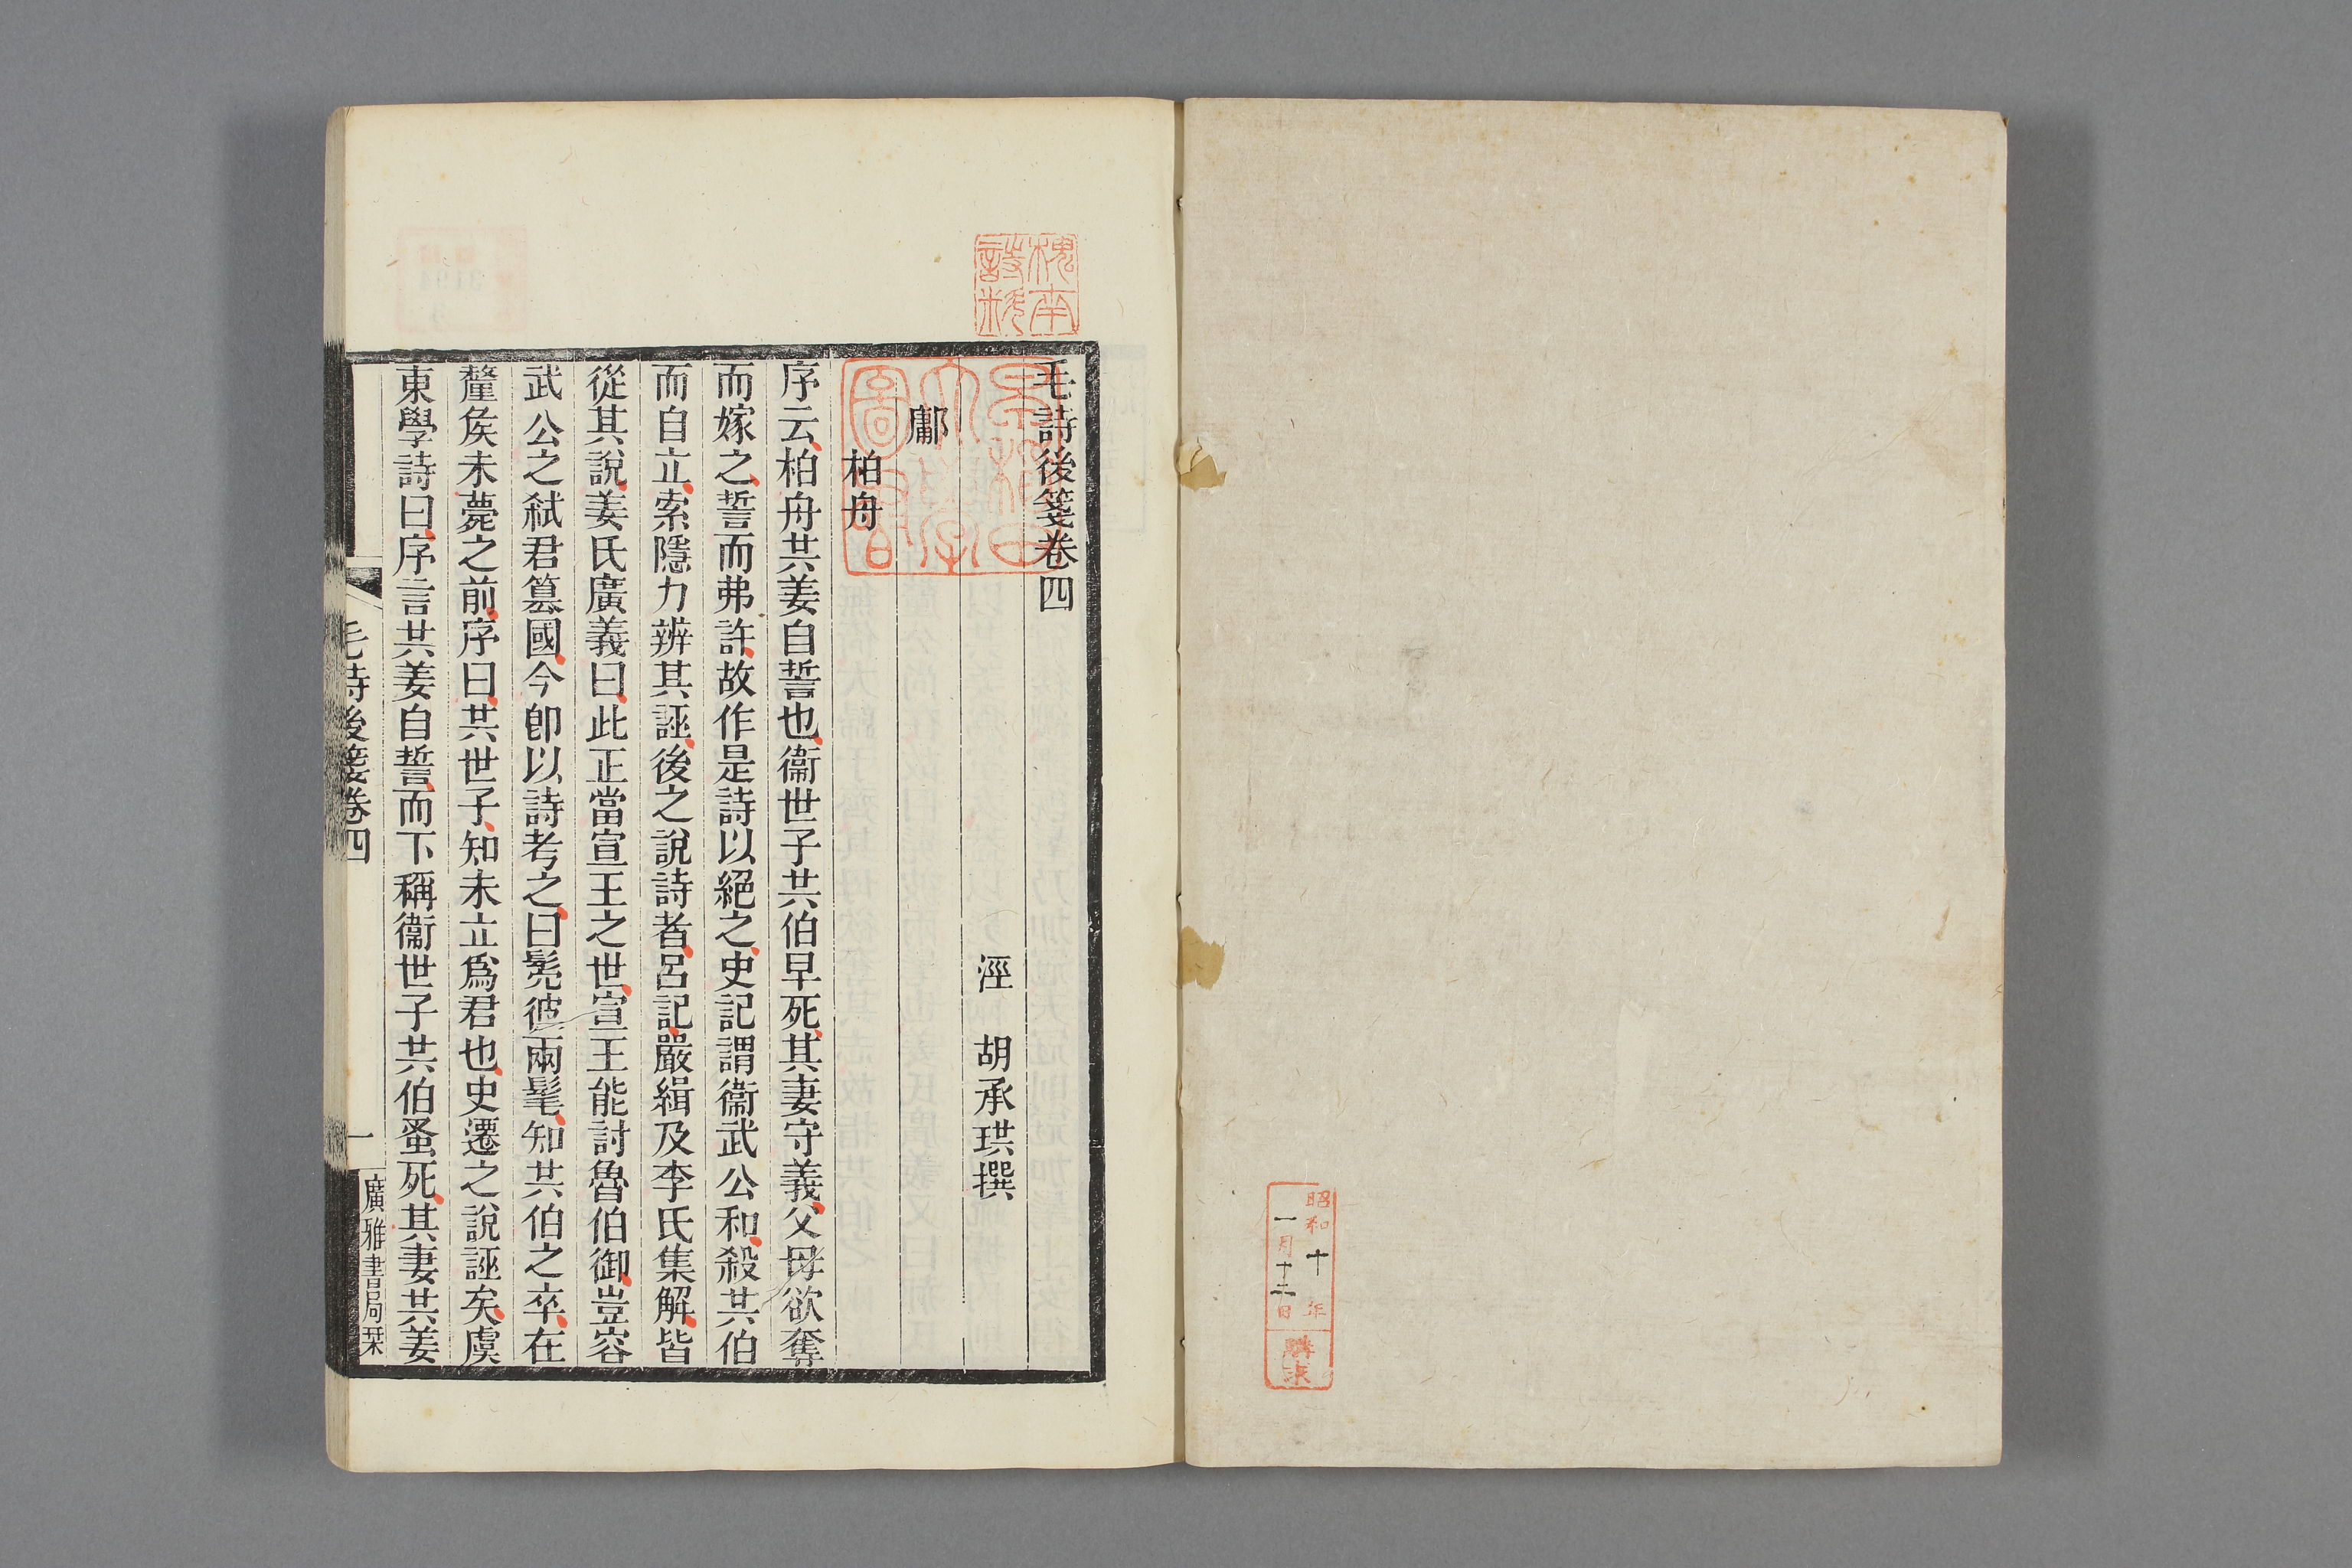 昭和十年
一月十二日
購求
毛詩後箋卷四
涇　胡承珙撰
鄘
柏舟
序云柏舟共姜自誓也衞世子共伯早死其妻守義父母欲奪
而嫁之誓而弗許故作是詩以絕之史記謂衞武公和殺共伯
而自立索隱力辨其誣後之說詩者呂記嚴緝及李氏集解皆
從其說姜氏廣義曰此正當宣王之世宣王能討魯伯御豈容
武公之弒君篡國今卽以詩考之曰髧彼兩髦知共伯之卒在
釐侯未薨之前序曰共世子知未立爲君也史遷之說誣矣虞
東學詩曰序言共姜自誓而下稱衞世子共伯蚤死其妻共姜
毛詩後箋卷四
一
廣雅書局栞